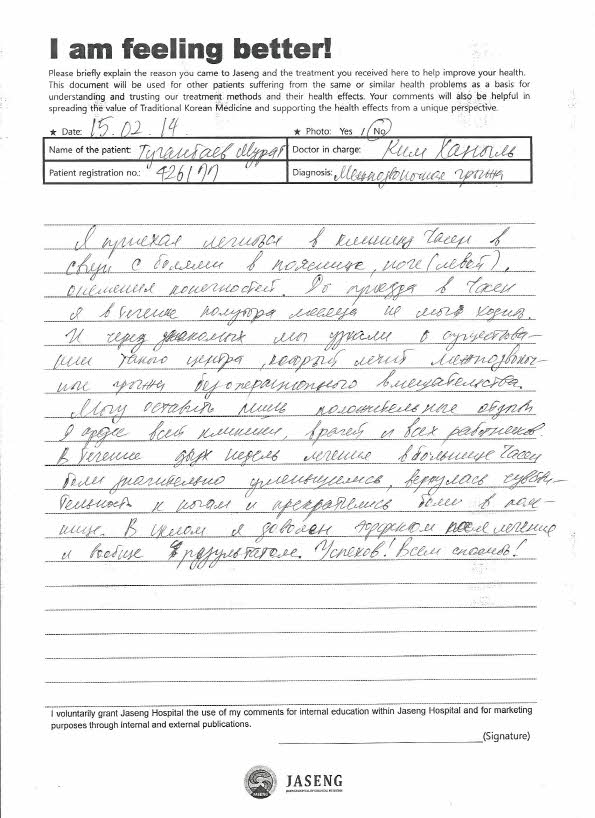 I am feeling better!
Please briefly explain the reason you came to Jaseng and the treatment you received here to help improve your health.
This document will be used for other patients suffering from the same or similar health problems as a basis for
understanding and trusting our treatment methods and their health effects. Your comments will also be helpful in
spreading the value of Traditional Korean Medicine and supporting the health effects from a unique perspective.
★ Date: 15.02.14.
★ Photo: Yes / No
Name of the patient: Мурат
Doctor in charge: Ким Ханыль
Patient registration no.:
Diagnosis: Межпозвоночная грыжа
Я приехал лечиться в клинику Часен в
связи с болями в пояснице, ноге (левой),
онемения конечностей. До приезда в Часен
я в течение полутора месяца не мог ходить.
И через знакомых мы узнали о существова-
нии такого центра, который лечит межпозвоноч-
ные грыжи без операционного вмешательства.
Могу оставить лишь положительные отзывы
в адрес всей клиники, врачей и всех работников.
В течение двух недель лечение в больнице Часен
боли значительно уменьшились, вернулась чувстви-
тельность к ногам и прекратились боли в пояс-
нице. В целом я доволен эффектом после лечение
и вообще результатом. Успехов! Всем спасибо!
I voluntarily grant Jaseng Hospital the use of my comments for internal education within Jaseng Hospital and for marketing
purposes through internal and external publications.
(Signature)
JASENG
JASENG